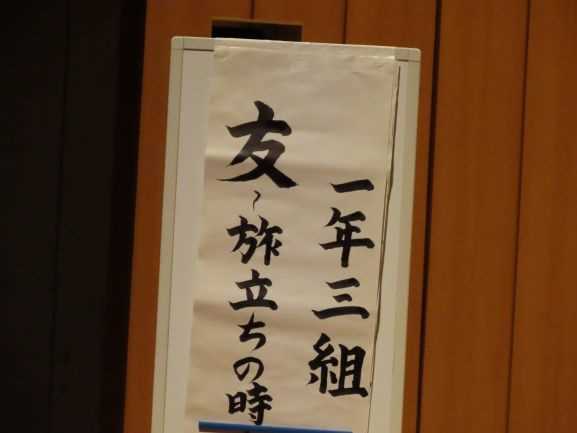 一年三組
友〜旅立ちの時